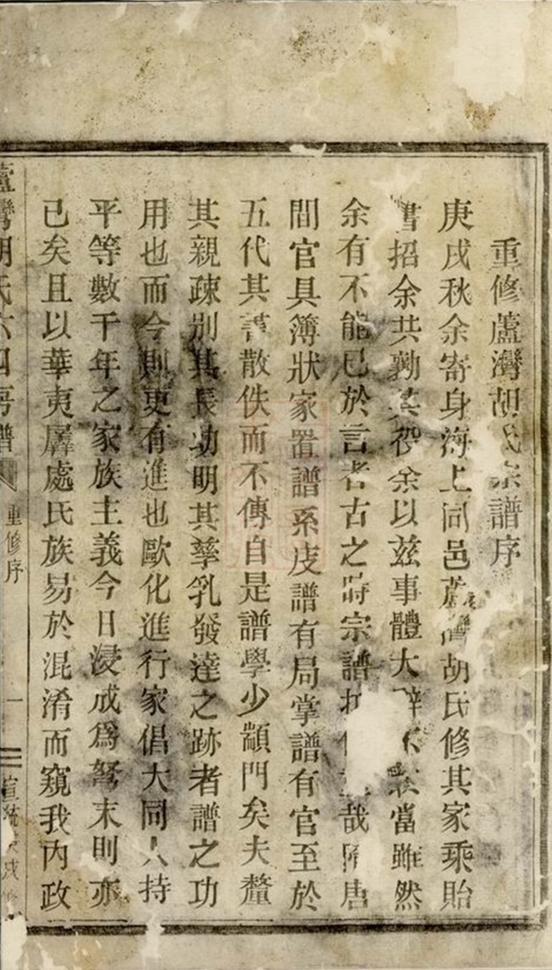 重修蘆灣胡氏宗譜序
庚戌秋余寄身海上同邑蘆灣胡氏修其家乘貽
書招余共勷其役余以茲事體大辭不敢當雖然
余有不能已於言者古之時宗譜哉隋唐
間官具簿狀家置譜系皮譜有局掌譜有官至於
五代其書散佚而不傳自是譜學少顓門矣夫釐
其親疎別其長幼明其孳乳發達之跡者譜之功
用也而今則更有進也歐化進行家倡大同人持
平等數千年之家族主義今日浸成為弩末則亦
已矣且以華夷羼處氏族易於混淆而窺我內政
蘆灣胡氏六四房譜 重修序 一 宣統庚戌修